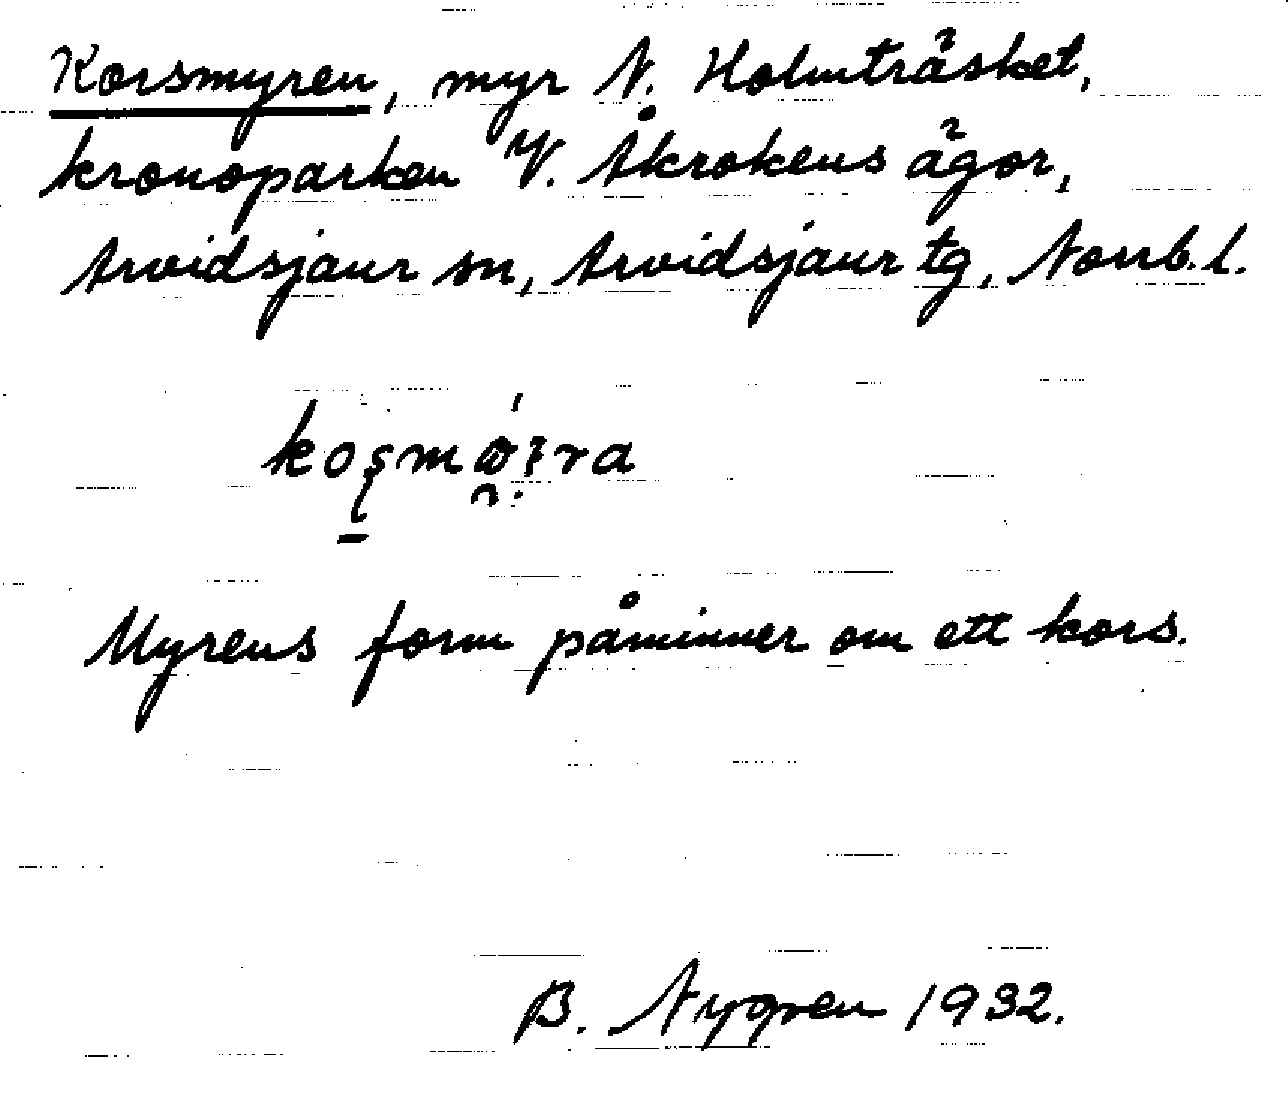 Korsmyren, myr N. Holmträsket,
kronoparken V. Åkrokens ägor,
Arvidsjaur sn, Arvidsjaur tg, Norrb. l.
Myrens form påminner om ett kors.
B. Nygren 1932.